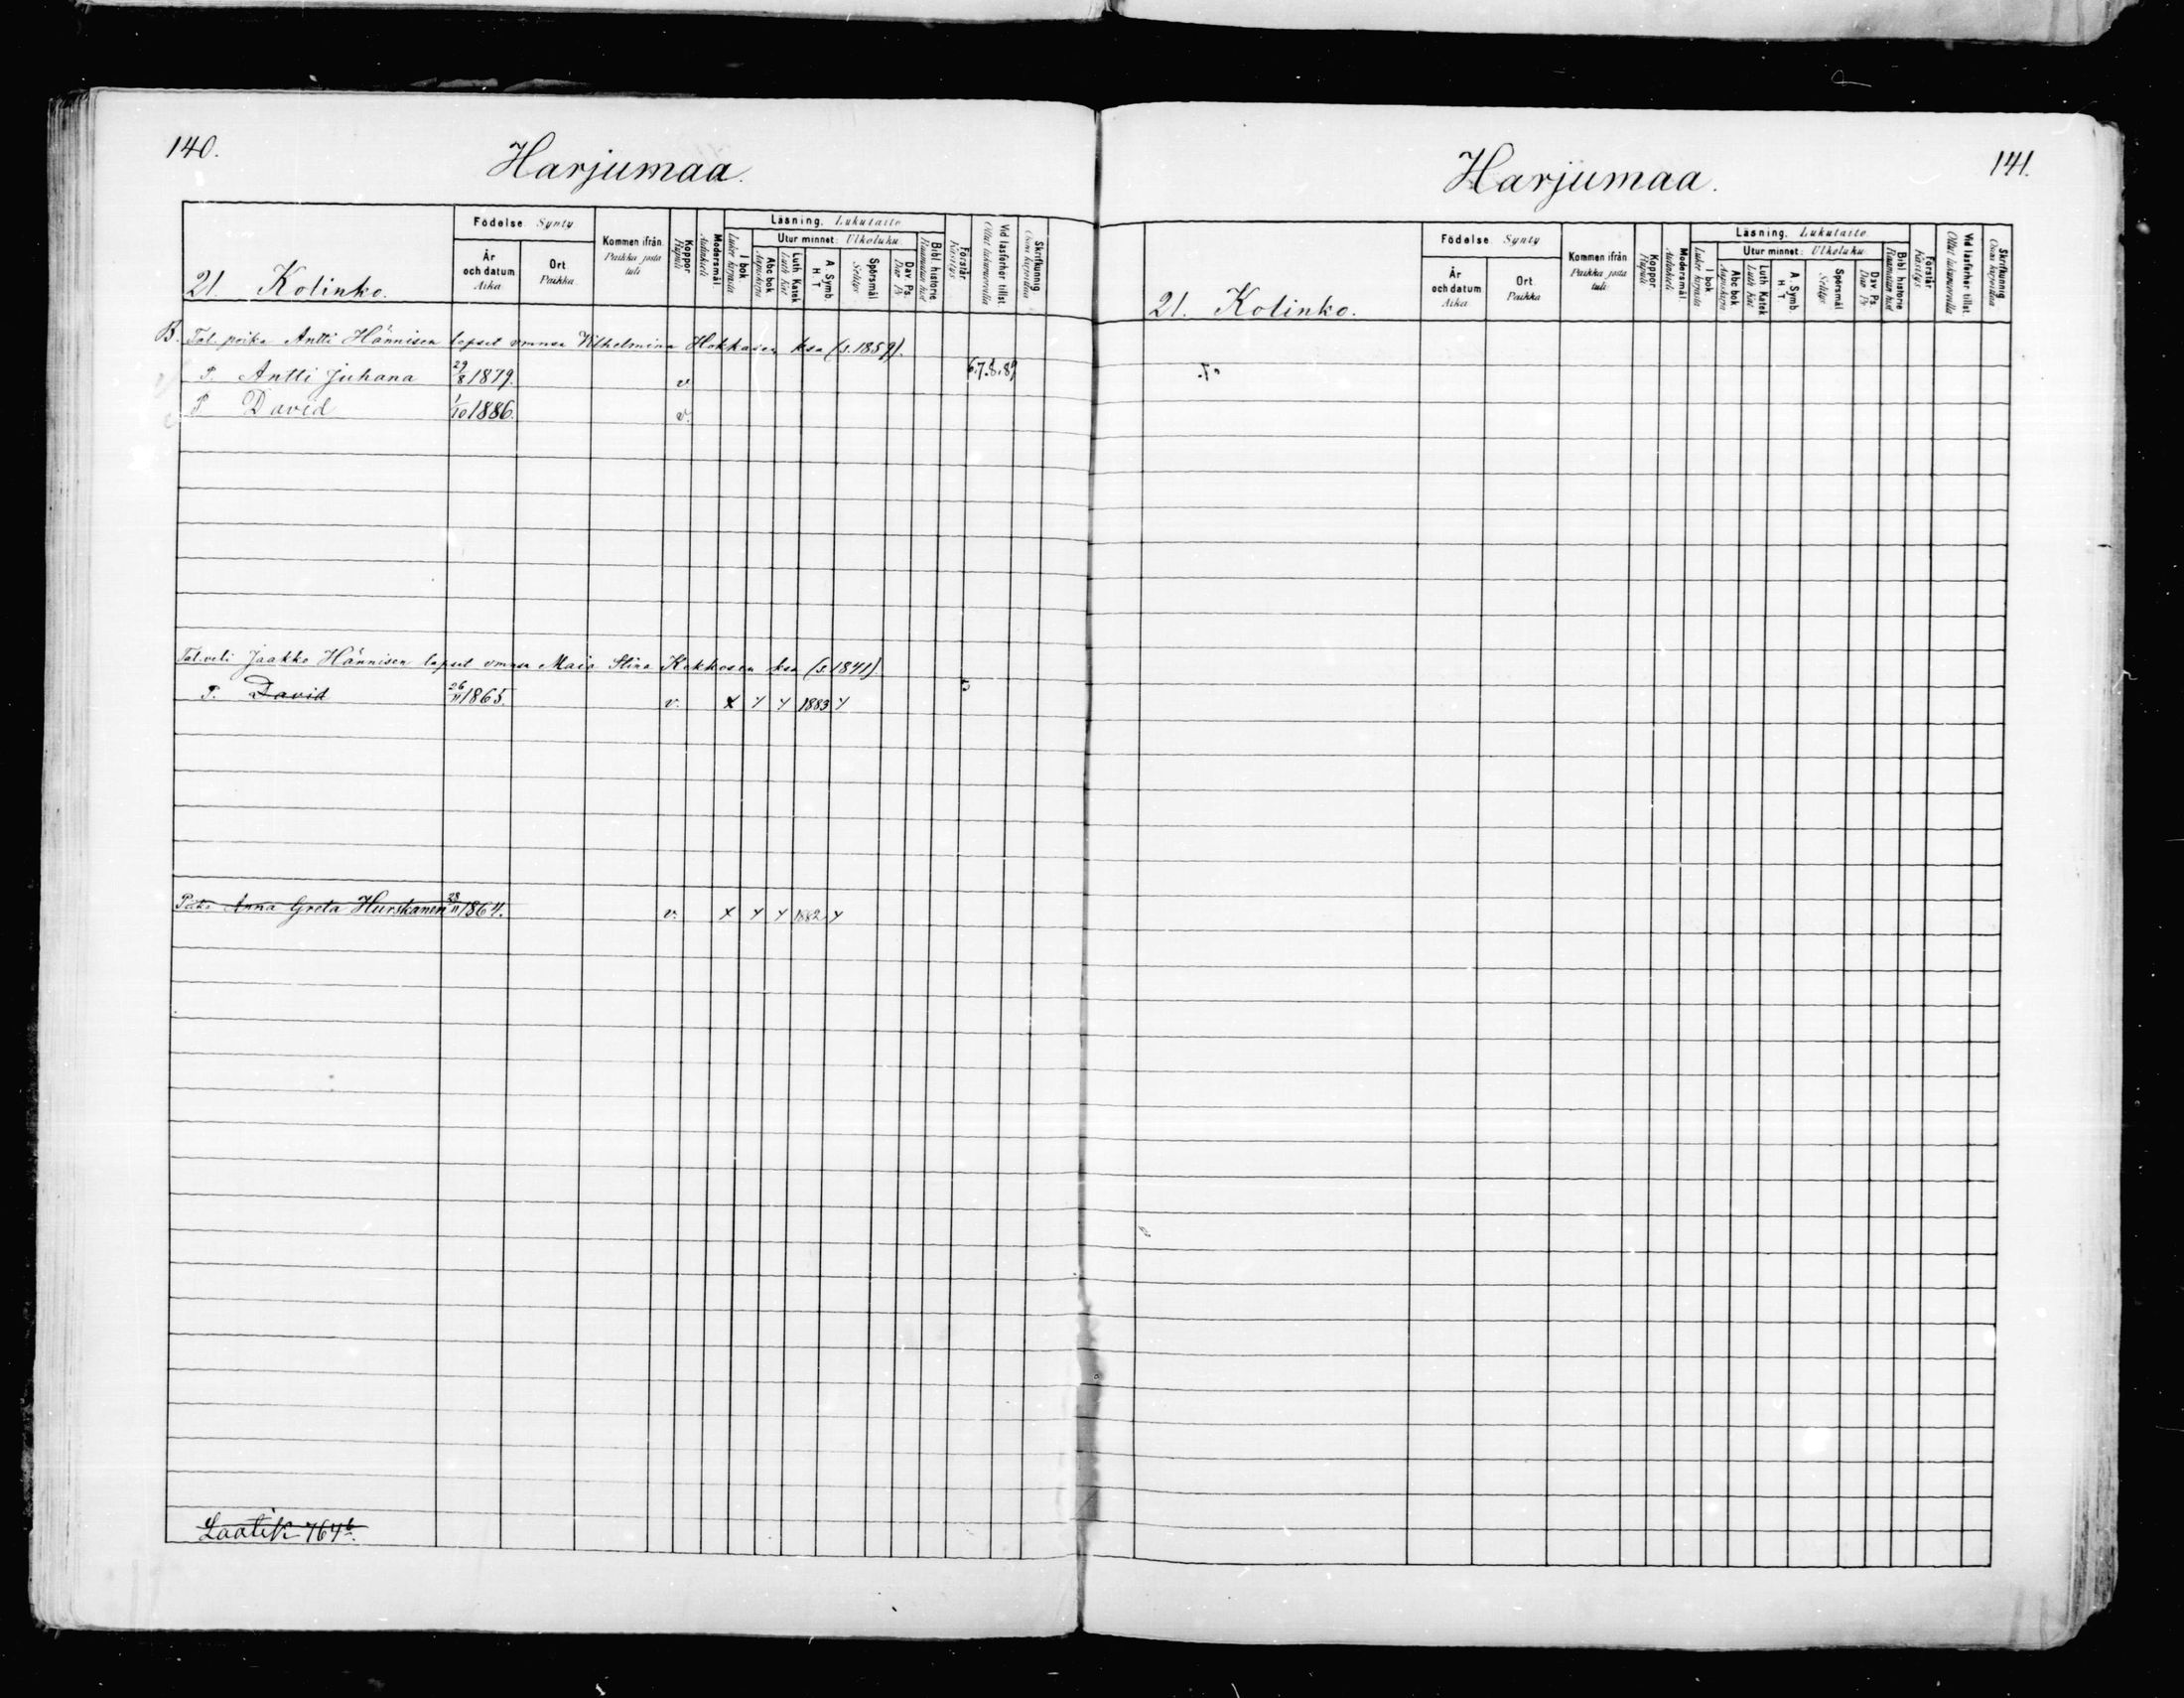 140.
Harjumaa.
21 Kolinko.
Födelse Synty
År och datum Aika
Ort Paikka
Kommen ifrån Paikka josta tuli
Koppor Rupuli
Modersmål Äidinkieli
Läsning. Lukutaito
Luker kirjasta I bok
Utur minnet: Ulkoluku
Aapiskirja Abc bok
Luth Kat. Luth Katek
A Symb. H T
Selitys Spörsmål
Dav Ps. Dav Ps.
Raamatun hist Bibl historie
Käsitys Förstår
Ollut lukuvuorolla Vid läsförhör tillst.
Osaa kirjoittaa Skrifkunnig
B. Tal. poika Antti Hännisen lapset vmnsa Vilhelmina Hokkasen ksa (s. 1859).
P. Antti Juhana 29/8 1879. v. 6.7.8.89
P David 1/10 1886. v.
Tal. veli Jaakko Hännisen lapset vmnsa Maia Stina Kekkosen ksa (s. 1841).
P. David 26/11 1865. v. 1883 5
Anna Greta Hurskainen 1864. v. 1882
Laatik 764
141.
Harjumaa.
21. Kolinko.
Födelse Synty
År och datum Aika
Ort. Paikka
Kommen ifrån Paikka josta tuli
Koppor Rupuli
Modersmål Äidinkieli
Läsning. Lukutaito
Luker kirjasta I bok
Utur minnet: Ulkoluku
Aapiskirja Abc bok
Luth Kat. Luth Katek
A Symb. H T
Selitys Spörsmål
Dav Ps. Dav Ps.
Raamatun hist Bibl historie
Käsitys Förstår
Ollut lukuvuorolla Vid läsförhör tillst.
Osaa kirjoittaa Skrifkunnig